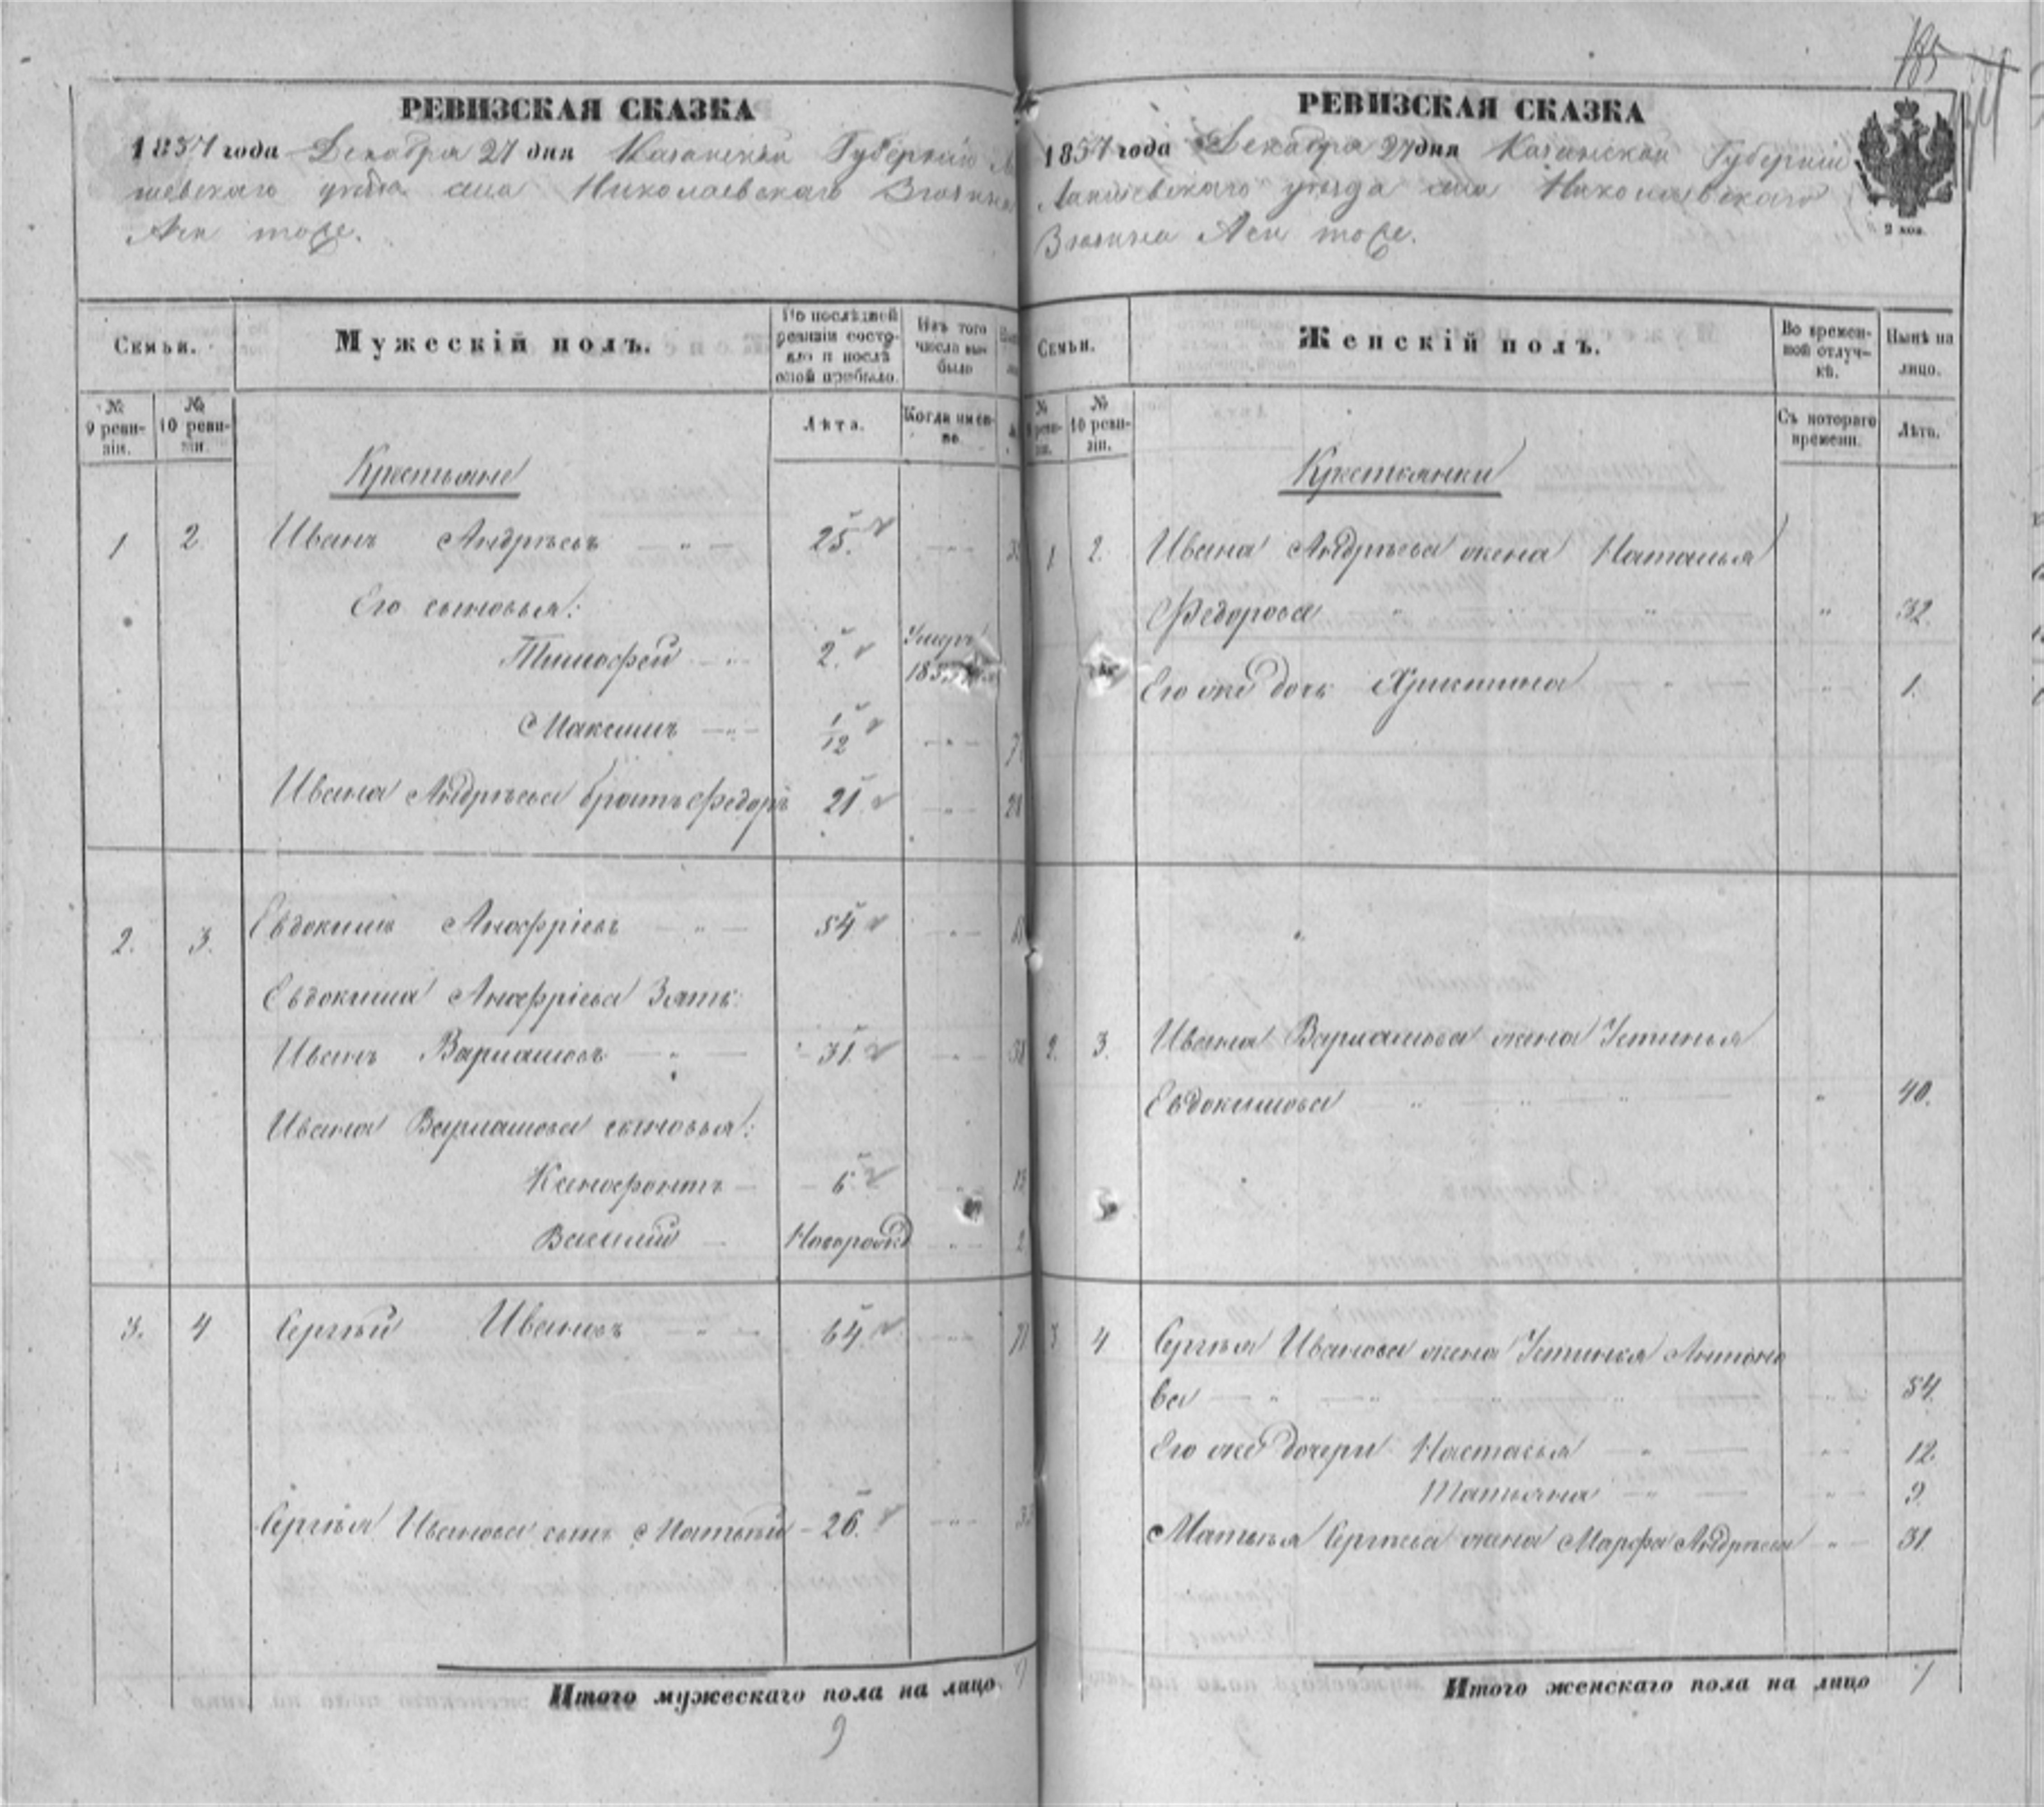 185
РЕВИЗСКАЯ СКАЗКА
1857 года Декабря 27 дня Казанской Губерніи
шевскаго уѣзда села Николаевскаго
тоже.
Семьи.
Мужескій полъ.
По послѣдней ревизіи состояло и послѣ оной прибыло.
Изъ того числа выбыло
№ 9 ревизіи.
№ 10 ревизіи.
Лѣта.
Когда именно.
Крестьяне
1 2 Иванъ Андрѣевъ 25.
Его сыновья:
Тимофей 2. Умеръ
Максимъ 1/12
Ивана Андрѣева братъ Федоръ 21.
2. 3. Евдокимъ Анофріевъ 54
Евдокима Анофріева Зять:
Иванъ Варламовъ 31.
Ивана Варламова сыновья:
Ксенофонтъ 6
Василій Новорожд
3. 4 Сергѣй Ивановъ 64
Сергѣя Иванова сынъ Матвѣй 26.
Итого мужескаго пола на лицо
9
РЕВИЗСКАЯ СКАЗКА
1857 года Декабря 27 дня Казанской Губерніи
Лаишевскаго уѣзда села Николаевскаго
тоже.
2 коп.
Семьи.
Женскій полъ.
Во временной отлучкѣ.
Нынѣ на лицо.
№ 9 ревизіи.
№ 10 ревизіи.
Съ котораго времени.
Лѣта.
Крестьянки
1 2. Ивана Андрѣева жена Наталья
Федорова 32.
Его же дочь Христина 1.
2. 3. Ивана Варламова жена Устинья
Евдокимова 40.
3 4 Сергѣя Иванова жена Устинья Антоно
ва 54.
Его же дочери Настасья 12.
Татьяна 9.
Матвѣя Сергѣева жена Марфа Андрѣева 31.
Итого женскаго пола на лицо 7